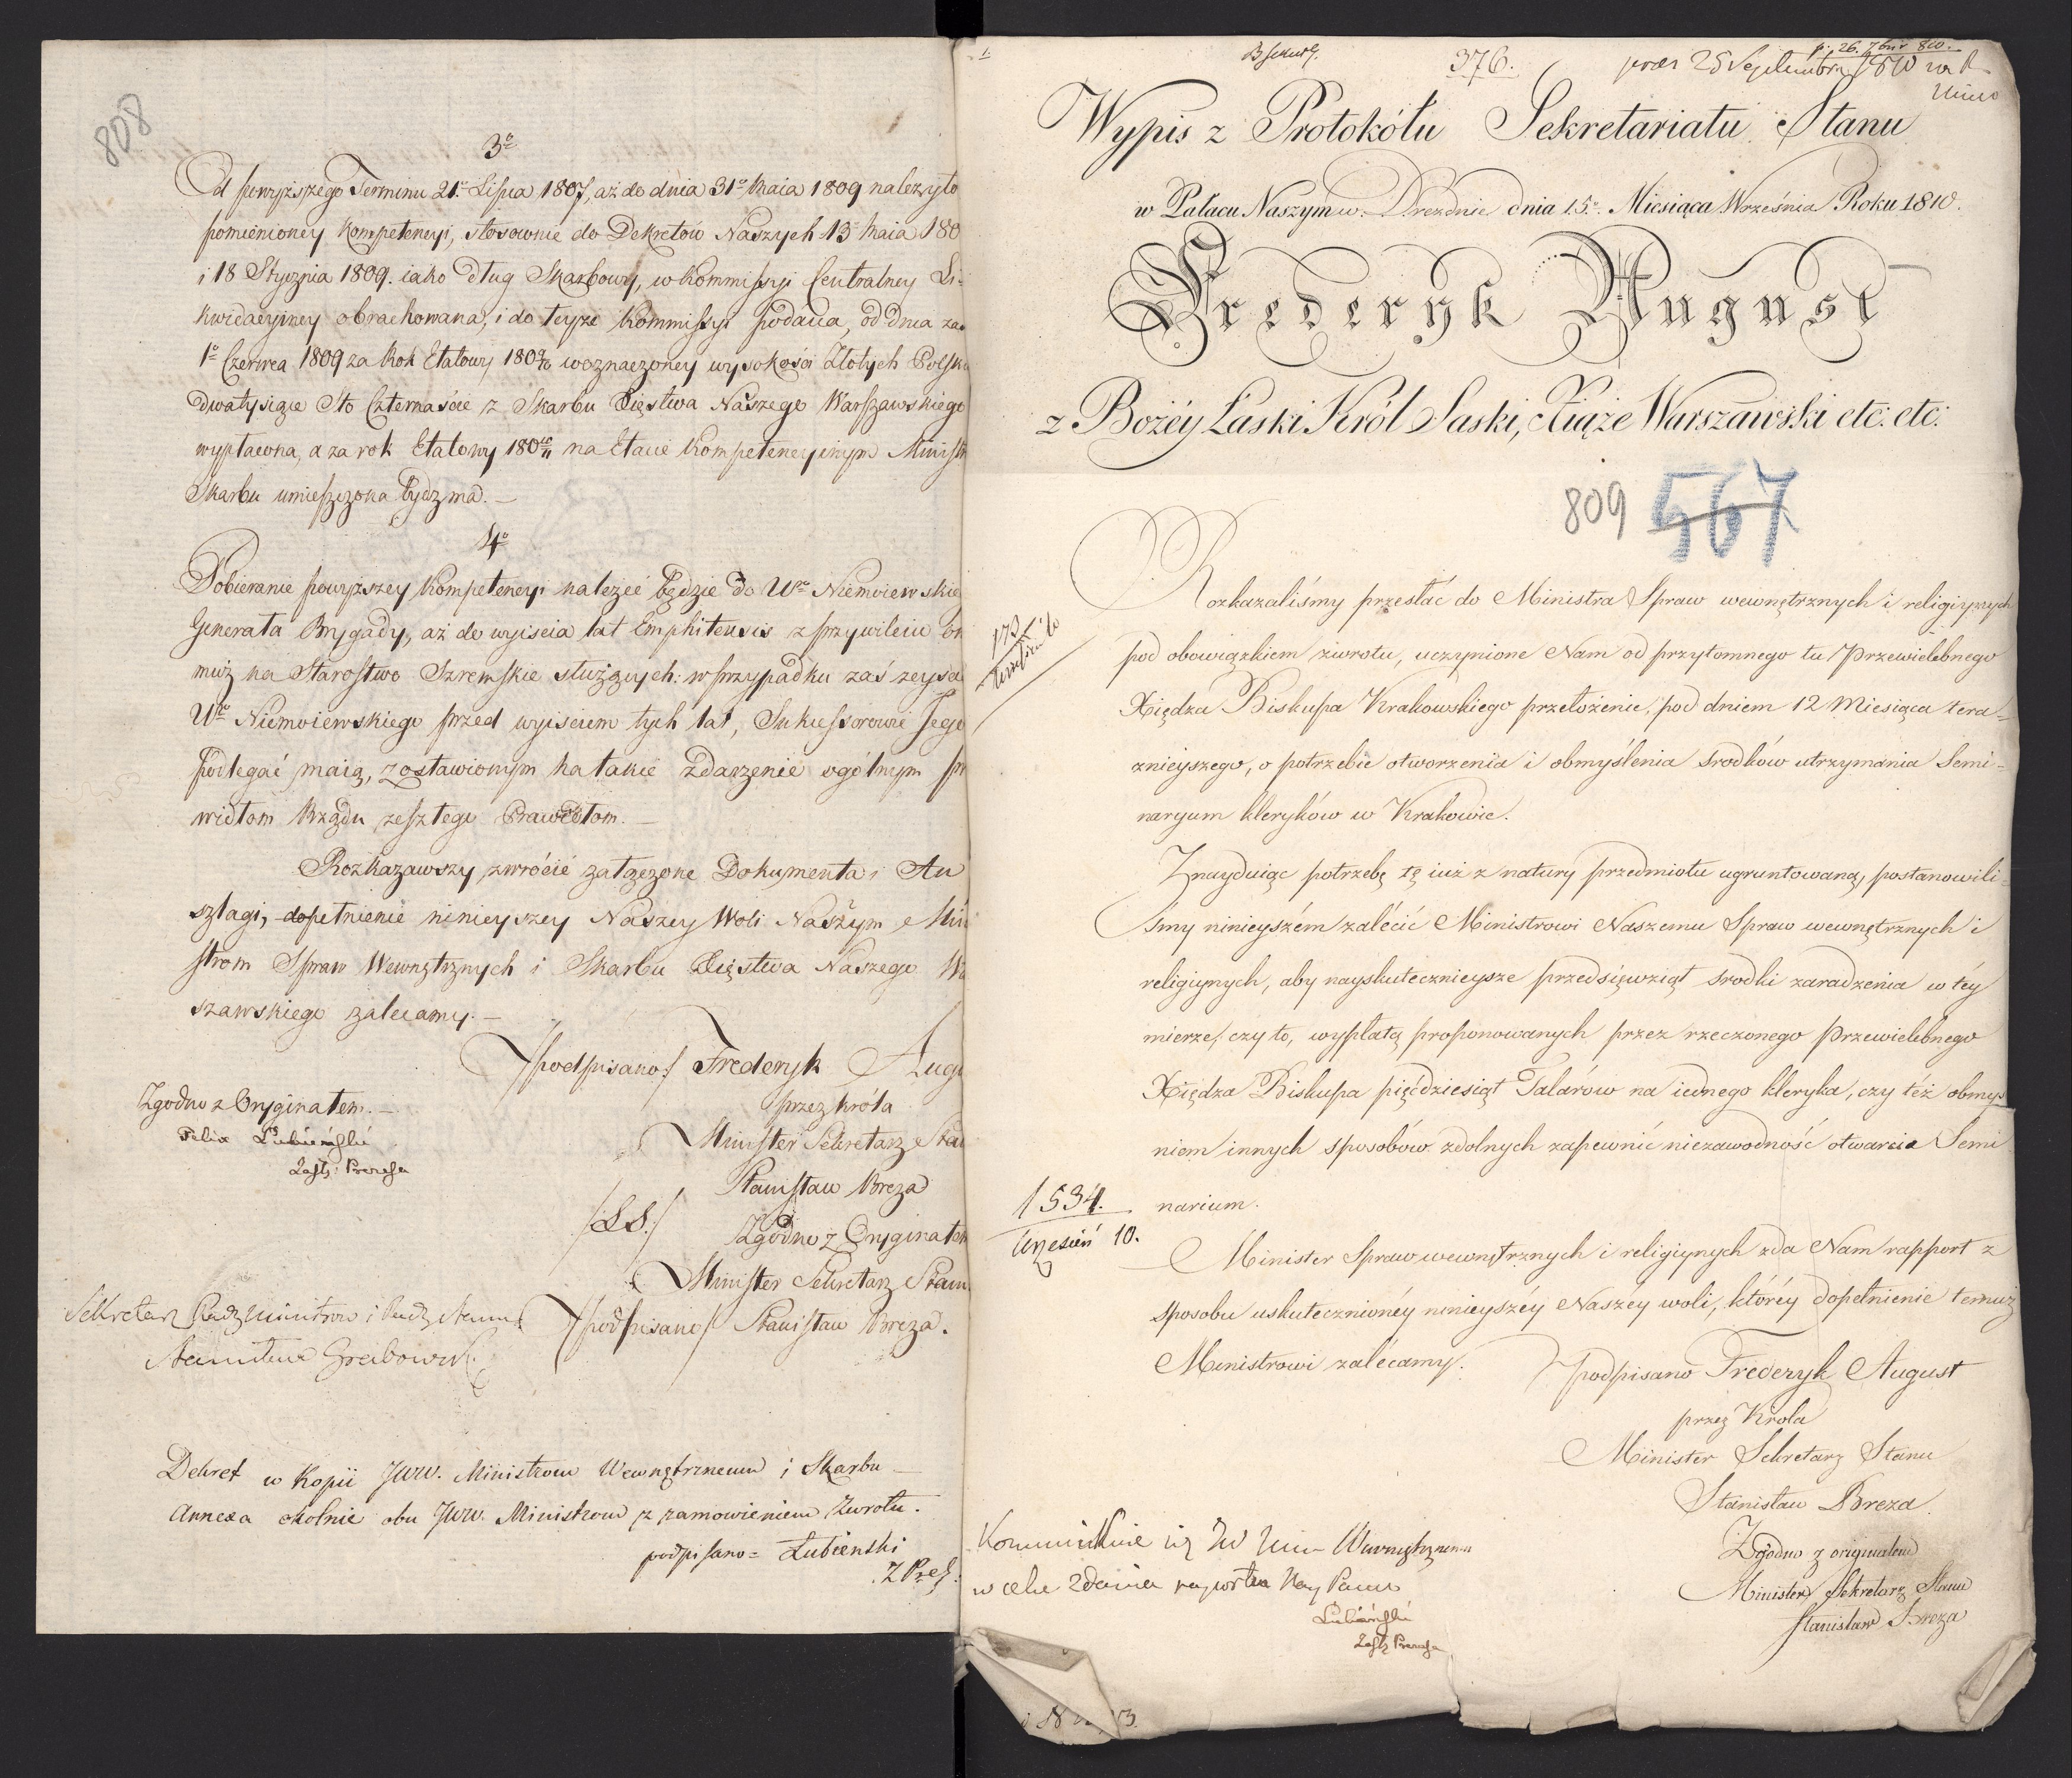 808
3º
Od powyższego Terminu 21º Lipca 1807, aż do dnia 31º Maia 1809 należyto
pomienioney Kompetencyi, stosownie do Dekretów Naszych 13º Maia 180
i 18 Stycznia 1809. iako Dług Skarbowy, w Kommissyi Centralney Li-
kwidacyiney obrachowana, i do teyże Kommissyi podana, od dnia zaś
1º Czerwca 1809 za Rok Etatowy 1809/10 w oznaczoney wysokości Złotych Polski
dwa tysiące Sto Czternaście z Skarbu Xięstwa Naszego Warszawskiego
wypłacona, a za rok Etatowy 1810/11 na Etacie Kompetencyinym Minist
Skarbu umieszczona bydz ma. —
4º
Pobieranie powyższey Kompetencyi należeć będzie do Uº Niemoiewskie
Generała Brygady, aż do wyiścia lat Emphiteusis z przywileiu on
muż na Starostwo Szremskie służących: w przypadku zaś zeyści
Uº Niemoiewskiego przed wyiściem tych lat, Sukcessorowie Jego
podlegać maią, zostawionym na takie zdarzenie ogólnym pr
widłom Rządu zeszłego Prawidłom. —
Rozkazawszy zwrócić załączone Dokumenta i An
szlagi, dopełnienie ninieyszey Naszey Woli Naszym Mini
strom Spraw Wewnętrznych i Skarbu Xięstwa Naszego Wa
szawskiego zalecamy. —
/podpisano:/ Frederyk Augu
przez Króla
Minister Sekretarz Stan
Stanisław Breza
/:L.S:/
Zgodno z Oryginałem
Minister Sekretarz Stanu
/podpisano/ Stanisław Breza.
Zgodno z Oryginałem. —
Felix Łubieński
Zastę: Prezesa
Sekretarz Rady Ministrow i Rady Stanu
Stanisław Grabowski
Dekret w Kopii JWW. Ministrom Wewnętrznemu i Skarbu —
Annexa okolnie obu JWW. Ministrom z zamowieniem Zwrotu.
podpisano = Łubienski
Z Prez:
376.
praes 25 Septembra 1810
p. 26. 7bris 810.
Wypis z Protokółu Sekretariatu Stanu
w Pałacu Naszym w Dreznie dnia 15º Miesiąca Września Roku 1810.
Frederyk August
z Bożéy Łaski Król Saski, Xiąże Warszawski etc: etc:
809 567
Rozkazaliśmy przesłać do Ministra Spraw wewnętrznych i religiynych
pod obowiązkiem zwrotu, uczynione Nam od przytomnego tu Przewielebnego
Xiędza Biskupa Krakowskiego przełożenie, pod dniem 12 Miesiąca tera-
znieyszego, o potrzebie otworzenia i obmyślenia srodków utrzymania Semi-
naryum kleryków w Krakowie.
Znayduiąc potrzebę tę iuż z natury przedmiotu ugruntowaną, postanowili-
śmy ninieyszém zalécić Ministrowi Naszemu Spraw wewnętrznych i
religiynych, aby nayskutecznieysze przedsięwziął srodki zaradzenia w téy
mierze, czy to, wypłatą proponowanych przez rzeczonego Przewielebnego
Xiędza Biskupa pięćdziesiąt Talarów na iednego kleryka, czy też obmys
niem innych sposobów zdolnych zapewnić niezawodność otwarcia Semi
narium.
1534.
Wrzesień 10.
Minister Spraw wewnętrznych i religiynych zda Nam rapport z
sposobu uskutecznionéy ninieyszéy Naszéy woli, któréy dopełnienie temuż
Ministrowi zalécamy.
/podpisano Frederyk August
przez Krola
Minister Sekretarz Stanu
Stanisław Breza
Zgodno z originałem
Minister Sekretarz Stanu
Stanisław Breza
Kommunikuie się JW Min Wewnętrznemu
w celu zdania rapportu Nay Panu
Łubieński
Zastę Prezesa